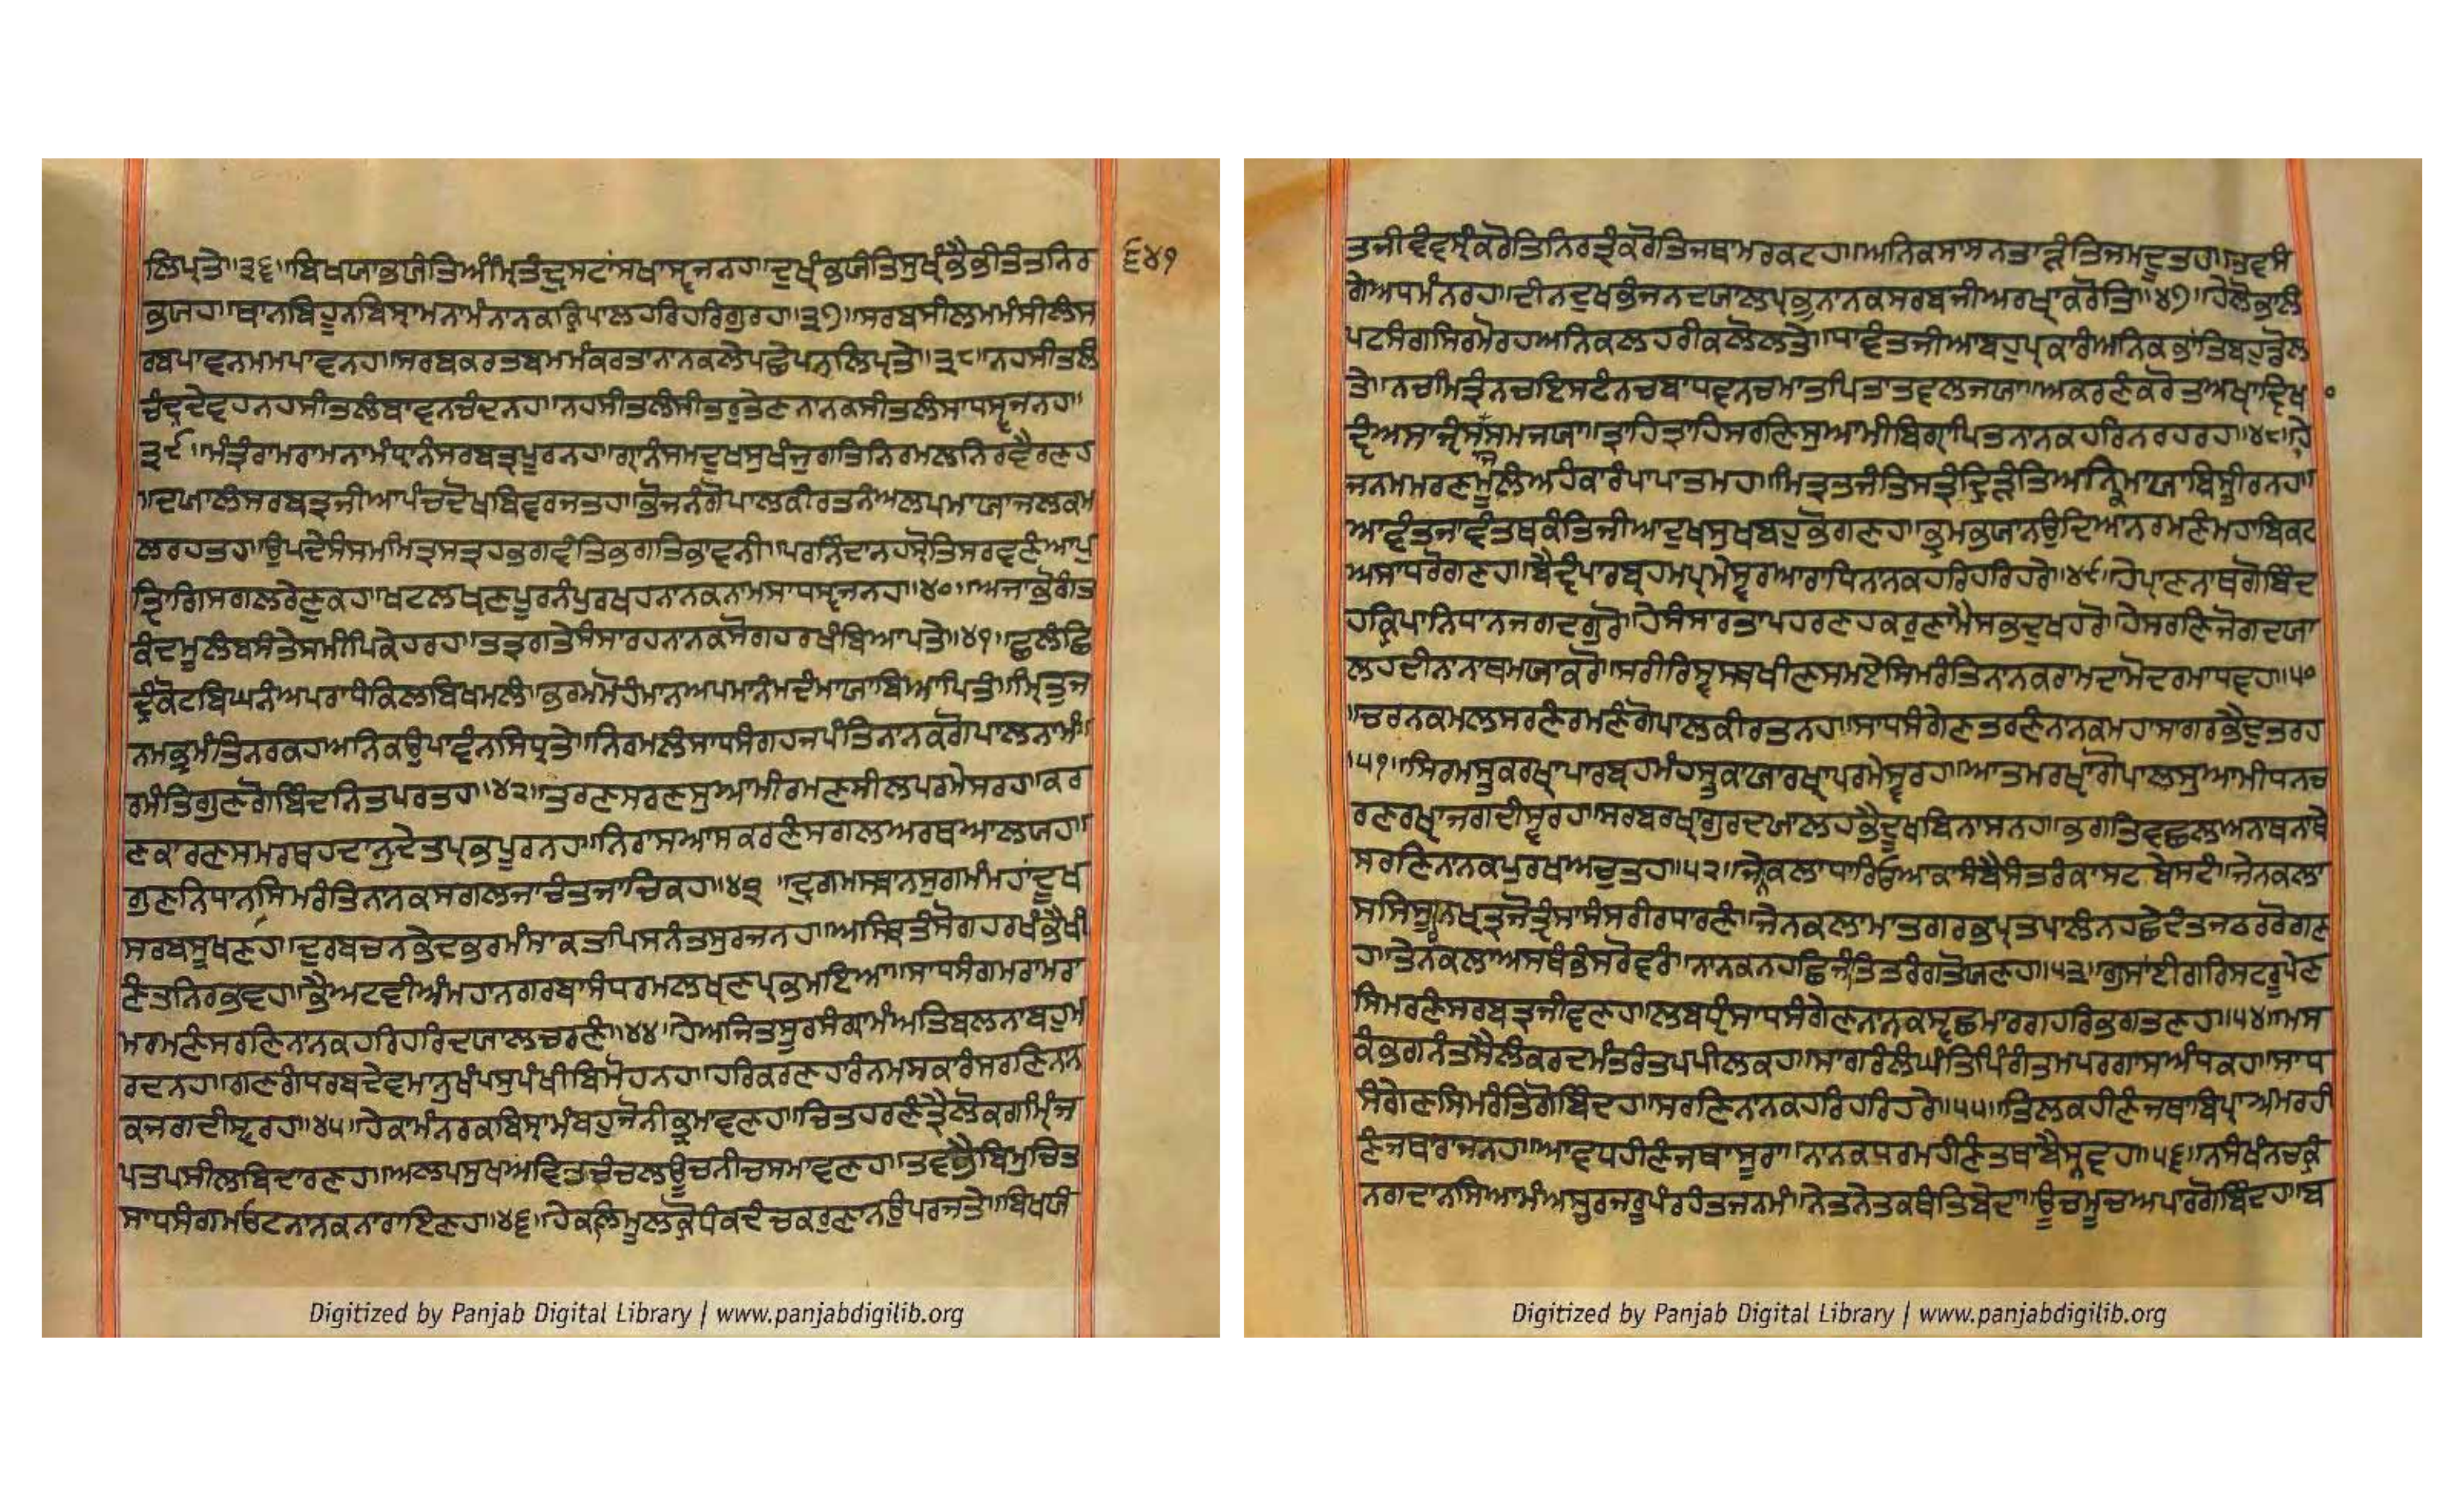 ਲਿਪ੍ਤੇ॥੩੬॥ਬਿਖਯਾਭਯੰਤਿਅੰਮ੍ਰਿਤੰਦ੍ਰੁਸਟਾਂਸਖਾਸ੍ਵਜਨਹ॥ਦੁਖੰਭਯੰਤਿਸੁਖ੍ਯੰਭੈਭੀਤੰਤਨਿਰ
ਭਯਹ॥ਥਾਨਬਿਹੂਨਬਿਸ੍ਰਾਮਨਾਮੰਨਾਨਕਕ੍ਰਿਪਾਲਹਰਿਹਰਿਗੁਰਹ॥੩੭॥ਸਰਬਸੀਲਮਮੰਸੀਲੰਸ
ਰਬਪਾਵਨਮਮਪਾਵਨਹ॥ਸਰਬਕਰਤਬਮਮੰਕਰਤਾਨਾਨਕਲੇਪਛੇਪਨਲਿਪ੍ਤੇ॥੩੮॥ਨਹਸੀਤਲੰ
ਚੰਦ੍ਰਦੇਵਹਨਹਸੀਤਲੰਬਾਵਨਚੰਦਨਹ॥ਨਹਸੀਤਲੰਸੀਤਰੁਤੇਣਨਾਨਕਸੀਤਲੰਸਾਧਸ੍ਵਜਨਹ॥
੩੯॥ਮੰਤ੍ਰੰਰਾਮਰਾਮਨਾਮੰਧ੍ਯਾਨੰਸਰਬਤ੍ਰਪੂਰਨਹ॥ਗ੍ਯਾਨੰਸਮਦੁਖਸੁਖੰਜੁਗਤਿਨਿਰਮਲਨਿਰਵੈਰਣਹ
॥ਦਯਾਲੰਸਰਬਤ੍ਰਜੀਆਪੰਚਦੋਖਬਿਵਰਜਤਹ॥ਭੋਜਨੰਗੋਪਾਲਕੀਰਤਨੰਅਲਪਮਾਯਾਜਲਕਮ
ਲਰਹਤਹ॥ਉਪਦੇਸੰਸਮਮਿਤ੍ਰਸਤ੍ਰਹਭਗਵੰਤਿਭਗਤਿਭਾਵਨੀ॥ਪਰਨਿੰਦਾਨਹਸ੍ਰੋਤਿਸਰਵਣੰਆਪੁ
ਤ੍ਯਿਾਗਿਸਗਲਰੇਣੁਕਹ॥ਖਟਲਖ੍ਯਣਪੂਰਨੰਪੁਰਖਹਨਾਨਕਨਾਮਸਾਧਸ੍ਵਜਨਹ॥੪੦॥ਅਜਾਭੋਗੰਤ
ਕੰਦਮੂਲੰਬਸੰਤੇਸਮੀਪਿਕੇਹਰਹ॥ਤਤ੍ਰਗਤੇਸੰਸਾਰਹਨਾਨਕਸੋਗਹਰਖੰਬਿਆਪਤੇ॥੪੧॥ਛਲੰਛਿ
ਦ੍ਰੰਕੋਟਬਿਘਨੰਅਪਰਾਧੰਕਿਲਬਿਖਮਲੰ॥ਭਰਮਮੋਹੰਮਾਨਅਪਮਾਨੰਮਦੰਮਾਯਾਬਿਆਪਿਤੰ॥ਮ੍ਰਿਤੁਜ
ਨਮਭ੍ਰਮੰਤਿਨਰਕਹਅਨਿਕਉਪਾਵੰਨਸਿਧ੍ਯਤੇ॥ਨਿਰਮਲੰਸਾਧਸੰਗਹਜਪੰਤਿਨਾਨਕਗੋਪਾਲਨਾਮੰ॥
ਰਮੰਤਿਗੁਣਗੋਬਿੰਦਨਿਤਪਰਤਹ॥੪੨॥ਤਰਣਸਰਣਸੁਆਮੀਰਮਣਸੀਲਪਰਮੇਸਰਹ॥ਕਰ
ਣਕਾਰਣਸਮਰਥਹਦਾਨੁਦੇਤਪ੍ਰਭਪੂਰਨਹ॥ਨਿਰਾਸਆਸਕਰਣੰਸਗਲਅਰਥਆਲਯਹ॥
ਗੁਣਨਿਧਾਨਸਿਮਰੰਤਿਨਾਨਕਸਗਲਜਾਚੰਤਜਾਚਿਕਹ॥੪੩॥ਦੁਰਗਮਸਥਾਨਸੁਗਮੰਮਹਾਂਦੂਖ
ਸਰਬਸੂਖਣਹ॥ਦੁਰਬਚਨਭੇਦਭਰਮੰਸਾਕਤਪਿਸਨੰਤਸੁਰਜਨਹ॥ਅਸਥਿਤੰਸੋਗਹਰਖੰਭੈਖੀ
ਣੰਤਨਿਰਭਵਹ॥ਭੈਅਟਵੀਅੰਮਹਾਨਗਰਬਾਸੰਧਰਮਲਖ੍ਯਣਪ੍ਰਭਮਇਆ॥ਸਾਧਸੰਗਮਰਾਮਰਾ
ਮਰਮਣੰਸਰਣਿਨਾਨਕਹਰਿਹਰਿਦਯਾਲਚਰਣੰ॥੪੪॥ਹੇਅਜਿਤਸੂਰਸੰਗ੍ਰਾਮੰਅਤਿਬਲਨਾਬਹੁਮ
ਰਦਨਹ॥ਗਣਗੰਧਰਬਦੇਵਮਾਨੁਖੰਪਸੁਪੰਖੀਬਿਮੋਹਨਹ॥ਹਰਿਕਰਣਹਾਰੰਨਮਸਕਾਰੰਸਰਣਿਨਾਨ
ਕਜਗਦੀਸ੍ਵਰਹ॥੪੫॥ਹੇਕਾਮੰਨਰਕਬਿਸ੍ਰਾਮੰਬਹੁਜੋਨੀਭ੍ਰਮਾਵਣਹ॥ਚਿਤਹਰਣੰਤ੍ਰੈਲੋਕਗੰਮ੍ਯੰਜ
ਪਤਪਸੀਲਬਿਦਾਰਣਹ॥ਅਲਪਸੁਖਅਵਿਤਚੰਚਲਊਚਨੀਚਸਮਾਵਣਹ॥ਤਵਭੈਬਿਮੁਚਿਤ
ਸਾਧਸੰਗਮਓਟਨਾਨਕਨਾਰਾਇਣਹ॥੪੬॥ਹੇਕਲਿਮੂਲਕ੍ਰੋਧੰਕਦੰਚਕਰੁਣਾਨਉਪਰਜਤੇ॥ਬਿਖਯੰ
੬੪੧
ਤਜੀਵੰਵਸ੍ਯੰਕਰੋਤਿਨਿਰਤ੍ਯੰਕਰੋਤਿਜਥਾਮਰਕਟਹ॥ਅਨਿਕਸਾਸਨਤਾੜੰਤਿਜਮਦੂਤਹ॥ਤਵਸੰ
ਗੇਅਧਮੰਨਰਹ॥ਦੀਨਦੁਖਭੰਜਨਦਯਾਲਪ੍ਰਭੁਨਾਨਕਸਰਬਜੀਅਰਖ੍ਯਾਕਰੋਤਿ॥੪੭॥ਹੇਲੋਭਾਲੰ
ਪਟਸੰਗਸਿਰਮੋਰਹਅਨਿਕਲਹਰੀਕਲੋਲਤੇ॥ਧਾਵੰਤਜੀਆਬਹੁਪ੍ਰਕਾਰੰਅਨਿਕਭਾਂਤਿਬਹੁਡੋਲ
ਤੇ॥ਨਚਮਿਤ੍ਰੰਨਚਇਸਟੰਨਚਬਾਧਵਨਚਮਾਤਪਿਤਾਤਵਲਜਯਾ॥ਅਕਰਣੰਕਰੋਤਾਅਖਾਦ੍ਯਿਖਾ
ਦ੍ਯੰਅਸਾਜ੍ਯੰਸਾਜਸਮਜਯਾ॥ਤ੍ਰਾਹਿਤ੍ਰਾਹਿਸਰਣਿਸੁਆਮੀਬਿਗ੍ਯਾਪਿਤਨਾਨਕਹਰਿਨਰਹਰਹ॥੪੮॥ਹੇ
ਜਨਮਮਰਣਮੂਲੰਅਹੰਕਾਰੰਪਾਪਾਤਮਹ॥ਮਿਤ੍ਰਤਜੰਤਿਸਤ੍ਰੰਦ੍ਰਿੜੰਤਿਅਨਿਕਮਾਯਾਬਿਸ੍ਤੀਰਨਹ॥
ਆਵੰਤਜਾਵੰਤਥਕੰਤਿਜੀਆਦੁਖਸੁਖਬਹੁਭੋਗਣਹ॥ਭ੍ਰਮਭਯਾਨਉਦਿਆਨਰਮਣੰਮਹਾਬਿਕਟ
ਅਸਾਧਰੋਗਣਹ॥ਬੈਦ੍ਯੰਪਾਰਬ੍ਰਹਮਪ੍ਰਮੇਸ੍ਵਰਆਰਾਧਿਨਾਨਕਹਰਿਹਰਿਹਰੇ॥੪੯॥ਹੇਪ੍ਰਾਣਨਾਥਗੋਬਿੰਦ
ਹਕ੍ਰਿਪਾਨਿਧਾਨਜਗਦਗੁਰੋ॥ਹੇਸੰਸਾਰਤਾਪਹਰਣਹਕਰੁਣਾਮੈਸਭਦੁਖਹਰੋ॥ਹੇਸਰਣਿਜੋਗਦਯਾ
ਲਹਦੀਨਾਨਾਥਮਯਾਕਰੋ॥ਸਰੀਰਿਸ੍ਵਸਥਖੀਣਸਮਏਸਿਮਰੰਤਿਨਾਨਕਰਾਮਦਾਮੋਦਰਮਾਧਵਹ॥੫੦
॥ਚਰਨਕਮਲਸਰਣੰਰਮਣੰਗੋਪਾਲਕੀਰਤਨਹ॥ਸਾਧਸੰਗੇਣਤਰਣੰਨਾਨਕਮਹਾਸਾਗਰਭੈਦੁਤਰਹ
॥੫੧॥ਸਿਰਮਸ੍ਤਕਰਖ੍ਯਾਪਾਰਬ੍ਰਹਮੰਹਸ੍ਤਕਾਯਾਰਖ੍ਯਾਪਰਮੇਸ੍ਵਰਹ॥ਆਤਮਰਖ੍ਯਾਗੋਪਾਲਸੁਆਮੀਧਨਚ
ਰਣਰਖ੍ਯਾਜਗਦੀਸ੍ਵਰਹ॥ਸਰਬਰਖ੍ਯਾਗੁਰਦਯਾਲਹਭੈਦੂਖਬਿਨਾਸਨਹ॥ਭਗਤਿਵਛਲਅਨਾਥਨਾਥੇ
ਸਰਣਿਨਾਨਕਪੁਰਖਅਚੁਤਹ॥੫੨॥ਜੇਨਕਲਾਧਾਰਿਓਆਕਾਸੰਬੈਸੰਤਰੰਕਾਸਟਬੇਸਟੰ॥ਜੇਨਕਲਾ
ਸਸਿਸੂਰਨਖ੍ਯਤ੍ਰਜੋਤ੍ਯਿੰਸਾਸੰਸਰੀਰਧਾਰਣੰ॥ਜੇਨਕਲਾਮਾਤਗਰਭਪ੍ਰਤਪਾਲੰਨਹਛੇਦੰਤਜਠਰਰੋਗਣ
ਹ॥ਤੇਨਕਲਾਅਸਥੰਭੰਸਰੋਵਰੰ॥ਨਾਨਕਨਹਛਿਜੰਤਿਤਰੰਗਤੋਯਣਹ॥੫੩॥ਗੁਸਾਂਈਗਰਿਸਟਰੂਪੇਣ
ਸਿਮਰਣੰਸਰਬਤ੍ਰਜੀਵਣਹ॥ਲਬਧ੍ਯੰਸਾਧਸੰਗੇਣਨਾਨਕਸ੍ਵਛਮਾਰਗਹਰਿਭਗਤਣਹ॥੫੪॥ਮਸ
ਕੰਭਗਨੰਤਸੈਲੰਕਰਦਮੰਤਰੰਤਪਪੀਲਕਹ॥ਸਾਗਰੰਲੰਘੰਤਿਪਿੰਗੰਤਮਪਰਗਾਸਅੰਧਕਹ॥ਸਾਧ
ਸੰਗੇਣਸਿਮਰੰਤਿਗੋਬਿੰਦਹ॥ਸਰਣਿਨਾਨਕਹਰਿਹਰਿਹਰੇ॥੫੫॥ਤਿਲਕਹੀਣੰਜਥਾਬਿਪ੍ਰਾਅਮਰਹੀ
ਣੰਜਥਾਰਾਜਨਹ॥ਆਵਧਹੀਣੰਜਥਾਸੂਰਾ॥ਨਾਨਕਧਰਮਹੀਣੰਤਥਾਬੈਸ੍ਨਵਹ॥੫੬॥ਨਸੰਖੰਨਚਕ੍ਰੰ
ਨਗਦਾਨਸਿਆਮੰਅਸ੍ਚਰਜਰੂਪੰਰਹੰਤਜਨਮੰ॥ਨੇਤਨੇਤਕਥੰਤਿਬੇਦਾ॥ਊਚਮੂਚਅਪਾਰਗੋਬਿੰਦਹ॥ਬ
Digitized by Panjab Digital Library | www.panjabdigilib.org
Digitized by Panjab Digital Library | www.panjabdigilib.org